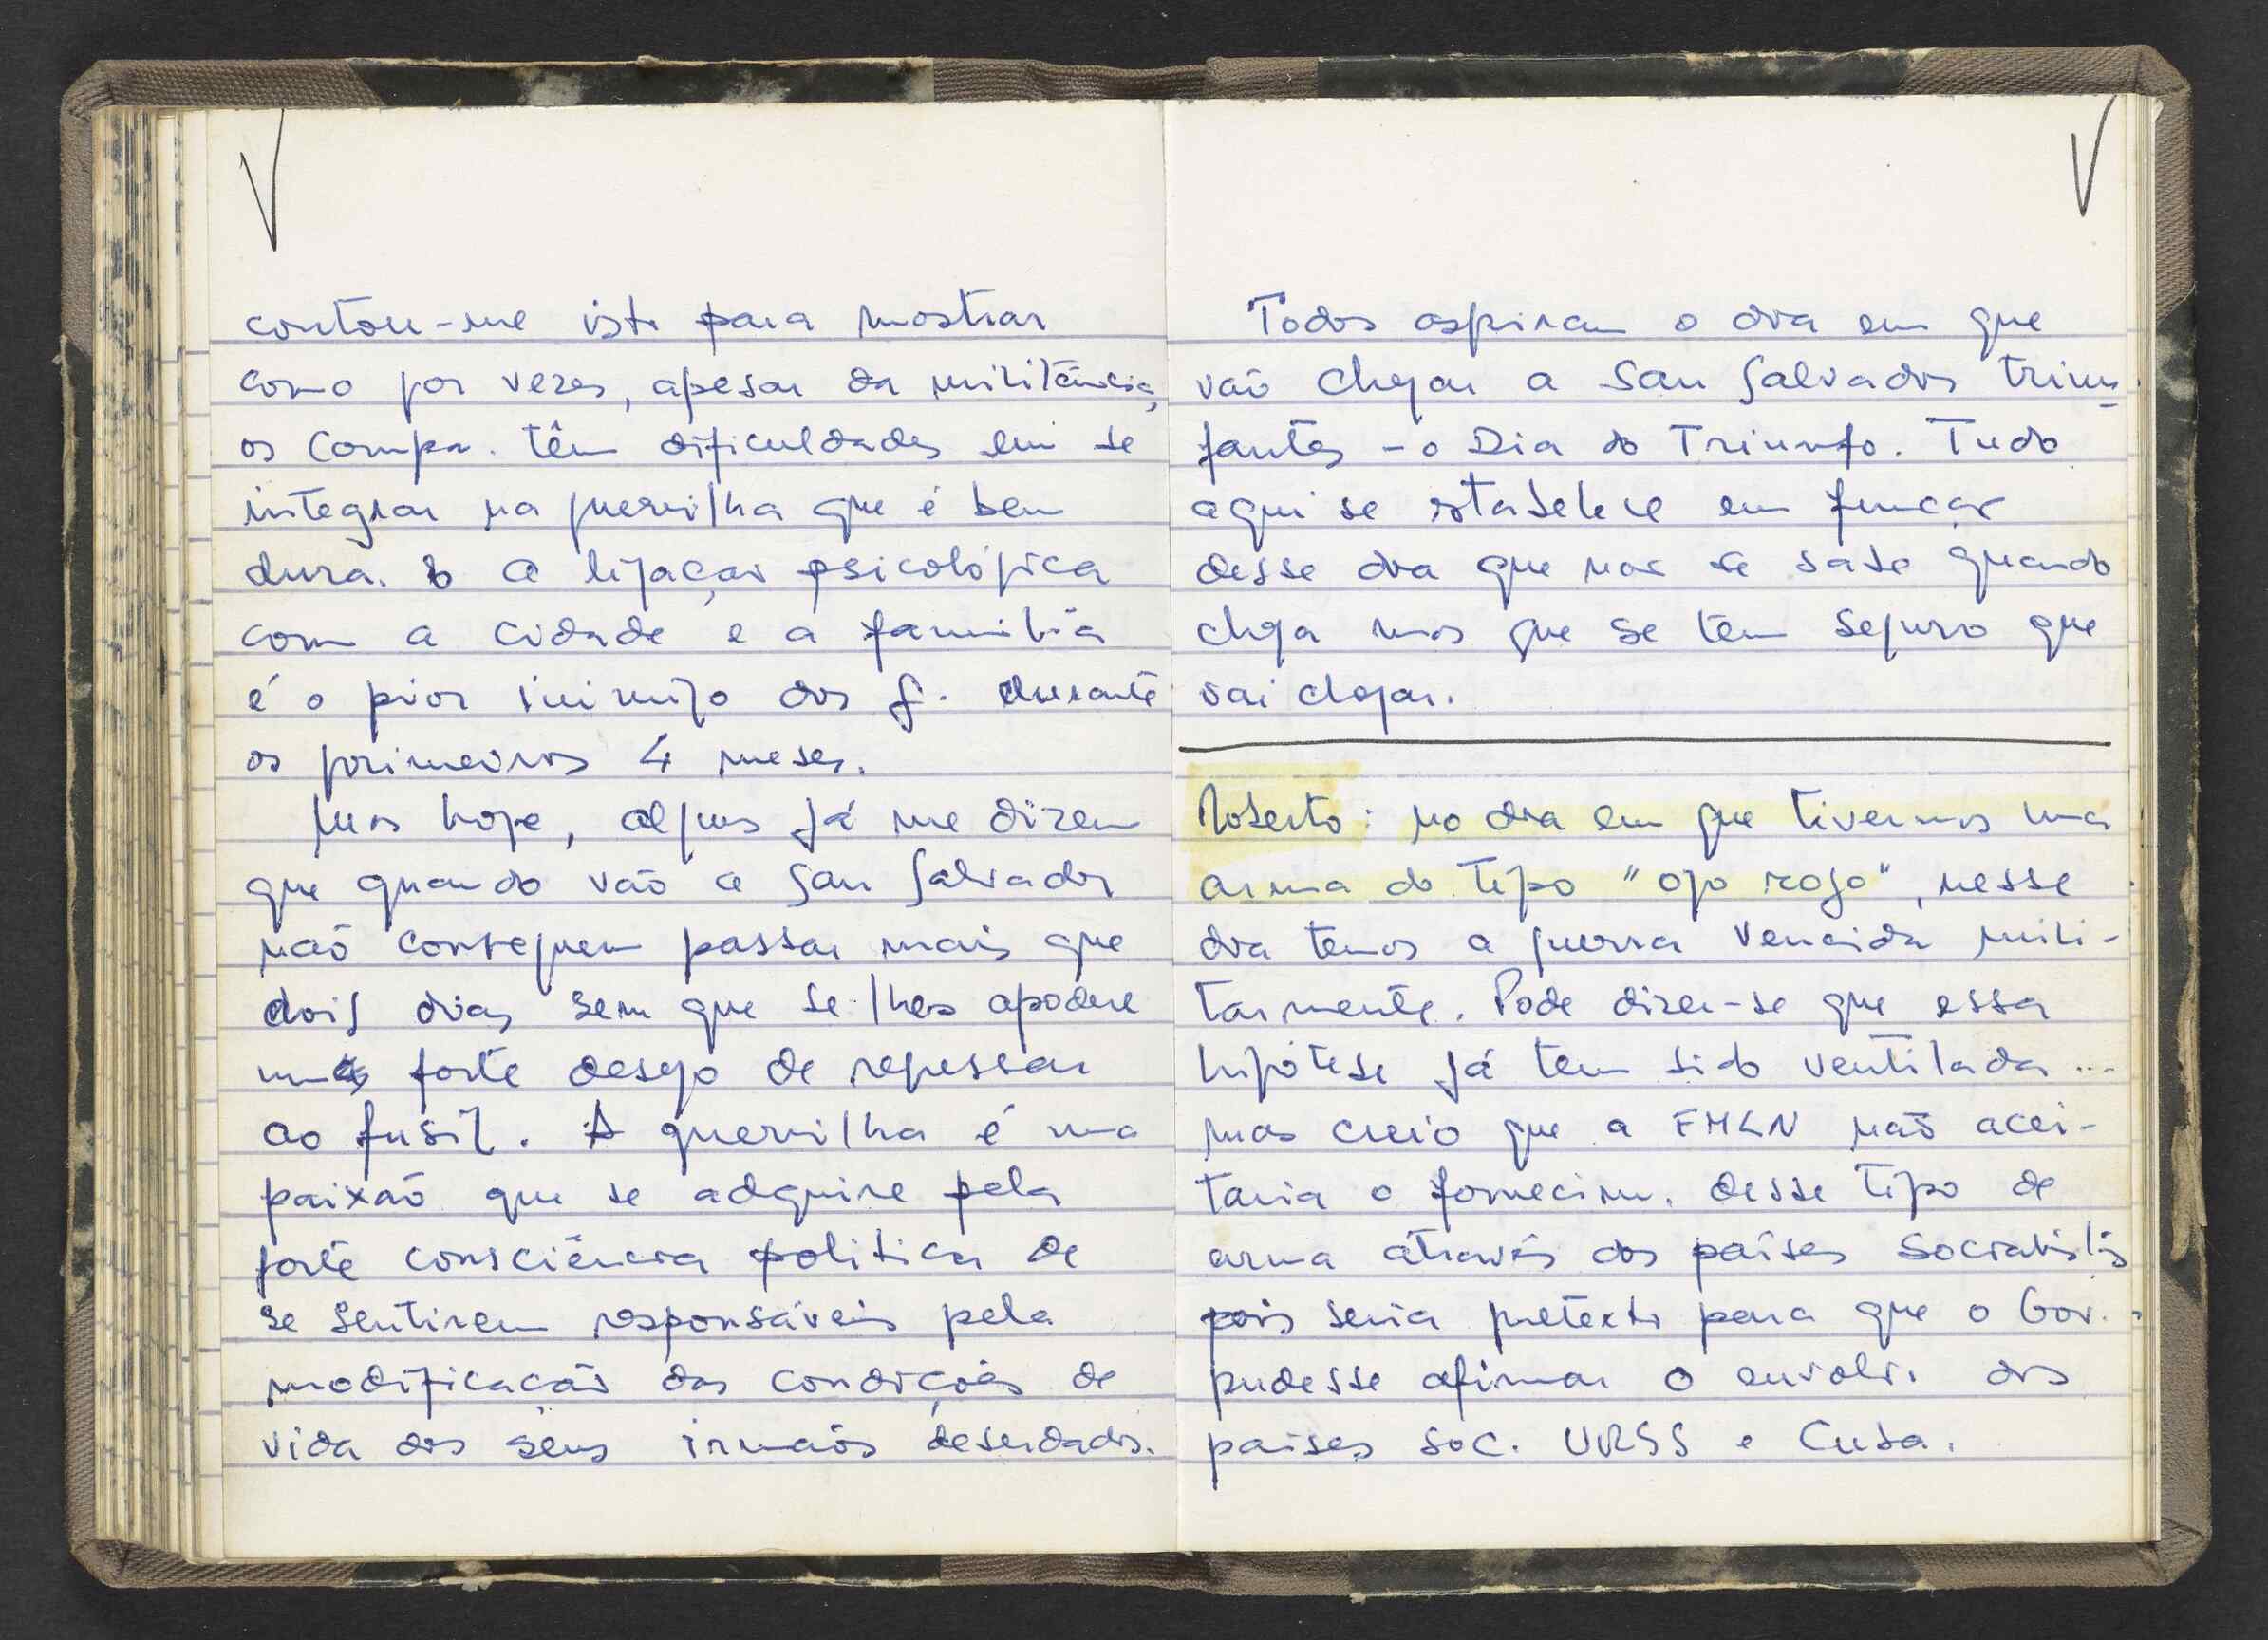 contou-me isto para mostrar
como por vezes, apesar da militância,
os compa. têm dificuldades em se
integrar na guerrilha que é bem
dura. A ligação psicológica
com a cidade e a família
é o pior inimigo dos g. durante
os primeiros 4 meses.
Mas hoje, alguns já me dizem
que quando vão a San Salvador
não conseguem passar mais que
dois dias sem que se lhes apodere
um forte desejo de regressar
ao fusil. A guerrilha é uma
paixão que se adquire pela
forte consciência política de
se sentirem responsáveis pela
modificação das condições de
vida dos seus irmãos deserdados.
Todos aspiram o dia em que
vão chegar a San Salvador triun-
fantes - o Dia do Triunfo. Tudo
aqui se estabelece em função
desse dia que não se sabe quando
chega mas que se tem seguro que
vai chegar.
Roberto: no dia em que tivermos uma
arma do tipo "ojo rojo", nesse
dia temos a guerra vencida mili-
tarmente. Pode dizer-se que essa
hipótese já tem sido ventilada...
mas creio que a FMLN não acei-
taria o fornecim. desse tipo de
arma através dos países socialistas
pois seria pretexto para que o Gov.
pudesse afirmar o envolv. dos
países soc. URSS e Cuba.